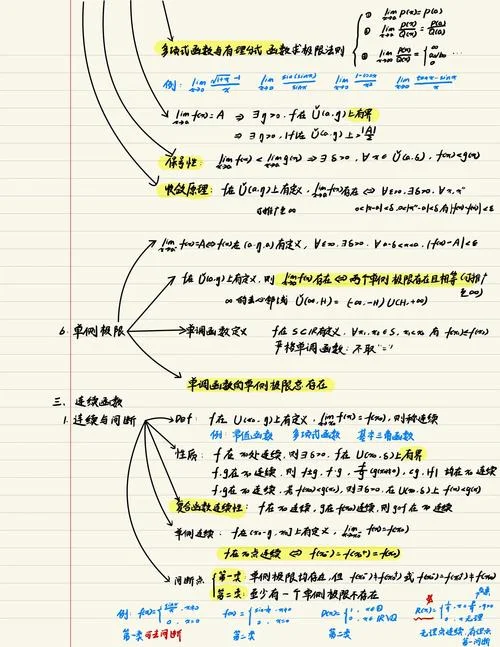 ① lim_{x→a} P(x)=P(a)
多项式函数与有理分式函数求极限法则 ② lim_{x→a} P(x)/Q(x) = P(a)/Q(a)
③ lim_{x→∞} P(x)/Q(x) = { ∞ a₀/b₀ 0 …
例: lim_{x→0} (√(1+x) -1)/x lim_{x→0} sin(sinx)/sinx lim_{x→0} (1-cosx)/x² lim_{x→0} (tanx-sinx)/x
lim f(x)=A ⇒ ∃η>0, f在 Ǔ(a,η)上有界
⇒ ∃η>0, |f|在 Ǔ(a,η)上 > |A|/2
保号性: lim_{x→a} f(x) < lim_{x→a} g(x) ⇒ ∃δ>0, ∀x∈Ǔ(a,δ), f(x)<g(x)
收敛原理: f在Ǔ(a,η)上有定义, lim f(x)存在 ⇔ ∀ε>0, ∃δ>0, ∀x,x''
可推广至∞
lim f(x)=A⇔f(x)在 (a-η,a)有定义, ∀ε>0, ∃δ>0, ∀a-δ<x<a, |f(x)-A|<ε
f在Ǔ(a,η)上有定义, 则 lim f(x)存在⇔两个单侧极限存在且相等(可推广至∞)
∞的去心邻域 Ǔ(∞,H) = (-∞,-H)∪(H,+∞)
6. 单侧极限 单调函数定义 f在S⊂R有定义, ∀x₁,x₂∈S, x₁<x₂ 有 f(x₁)≤f(x₂)
严格单调函数: 不取"="
单调函数的单侧极限总存在
三、连续函数
1. 连续与间断 Def: f在 U(x₀,η)上有定义, lim f(x)=f(x₀), 则称连续
例: 常值函数 多项式函数 基本三角函数
性质: f在x₀处连续, 则∃δ>0, f在U(x₀,δ)上有界
f,g在x₀连续, 则 f±g, f·g, f/g (g(x₀)≠0), cg, |f| 均在x₀连续
f,g在x₀连续, 若f(x₀)<g(x₀), 则∃δ>0, 在U(x₀,δ)上 f(x)<g(x)
复合函数连续性: f在x₀连续, g在f(x₀)连续, 则g∘f在x₀连续
单侧连续: f在(x₀-η, x₀]上有定义, lim f(x)=f(x₀)
f在x₀点连续 ⇔ f(x₀⁻)=f(x₀⁺)=f(x₀)
间断点 第一类: 单侧极限均存在, 但 f(x₀⁻)≠f(x₀⁺) 或 f(x₀⁻)=f(x₀⁺)≠f(x₀)
第二类: 至少有一个单侧极限不存在
例: f(x)={ sinx/x, x≠0 0, x=0 f(x)={ sin 1/x, x≠0 0, x=0 D(x)={ 1, x∈Q 0, x∈R\Q R(x)=
第一类可去间断 第二类 第二类 无理点连续, 有理点第一类间断